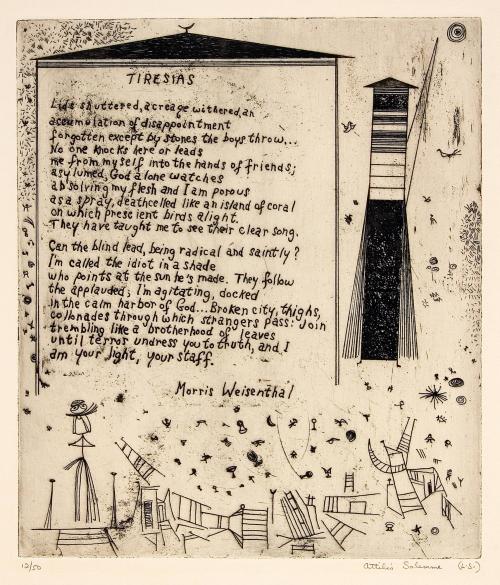 TIRESIAS
Lids shuttered, acreage withered, an
accumulation of disappointment
forgotten except by stones the boys throw...
No one knocks here or leads
me from myself into the hands of friends;
asylumed, God alone watches
absolving my flesh and I am porous
as a spray, deathcelled like an island of coral
on which prescient birds alight.
They have taught me to see their clear song.
Can the blind lead, being radical and saintly?
I'm called the idiot in a shade
who points at the sun he's made. They follow
the applauded; I'm agitating, docked
in the calm harbor of God... Broken city, thighs,
collonades through which strangers pass: Join
trembling like a brotherhood of leaves
until terror undress you to truth, and I
am your light, your staff.
Morris Weisenthal
12/50 Attilio Salemme (L.S.)